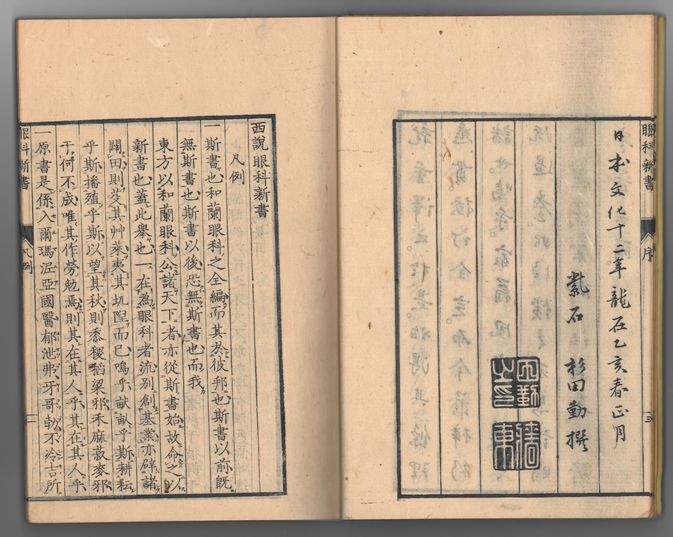 眼科新書 序 三
日本文化十二年龍在乙亥春正月
紫石 杉田勤撰
西說眼科新書
凡例
一斯書也和蘭眼科之全編而其於彼邦也斯書以前既
無斯書也斯書以後恐無斯書也而我
東方以和蘭眼科公諸天下者亦從斯書始故命之以
新書也蓋此舉也一在為眼科者流別創基業亦辟諸
闢田則芟其艸萊夷其而已嗚乎猷猷乎斯耕耘
乎斯播殖乎斯以望其秋則黍稷稻粱邪禾麻菽麥邪
于何不成唯其作勞勉焉則其在其人乎其在其人乎
一原書是係入爾瑪泥亞國醫郁池弗牙哥勃不冷吉所
眼科新書 凡例 一